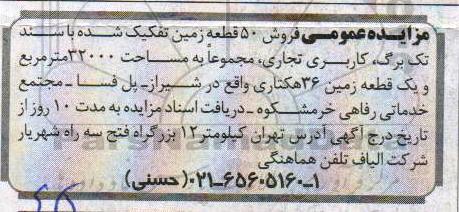 مزایده عمومی فروش ۵۰ قطعه زمین تفکیک شده با سند
تک برگ، کاربری تجاری، مجموعاً به مساحت ۳۲۰۰۰ مترمربع
و یک قطعه زمین ۳۶ هکتاری واقع در شیراز ـ پل فسا ـ مجتمع
خدماتی رفاهی خرمشکوه ـ دریافت اسناد مزایده به مدت ۱۰ روز از
تاریخ درج آگهی آدرس تهران کیلومتر ۱۲ بزرگراه فتح سه راه شهریار
شرکت الیاف تلفن هماهنگی
۱ـ۰۲۱ـ۶۵۶۰۵۱۶۰ (حسنی)